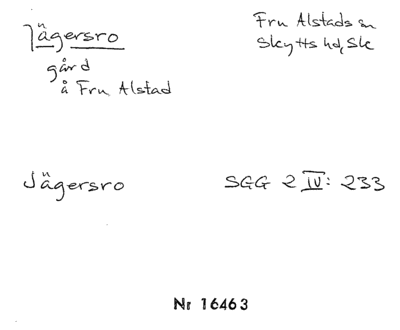 Jägersro
Fru Alstads sn
Skytts hd, Sk
gård
å Fru Alstad
Jägersro SGG 2 IV: 233
Nr 16463